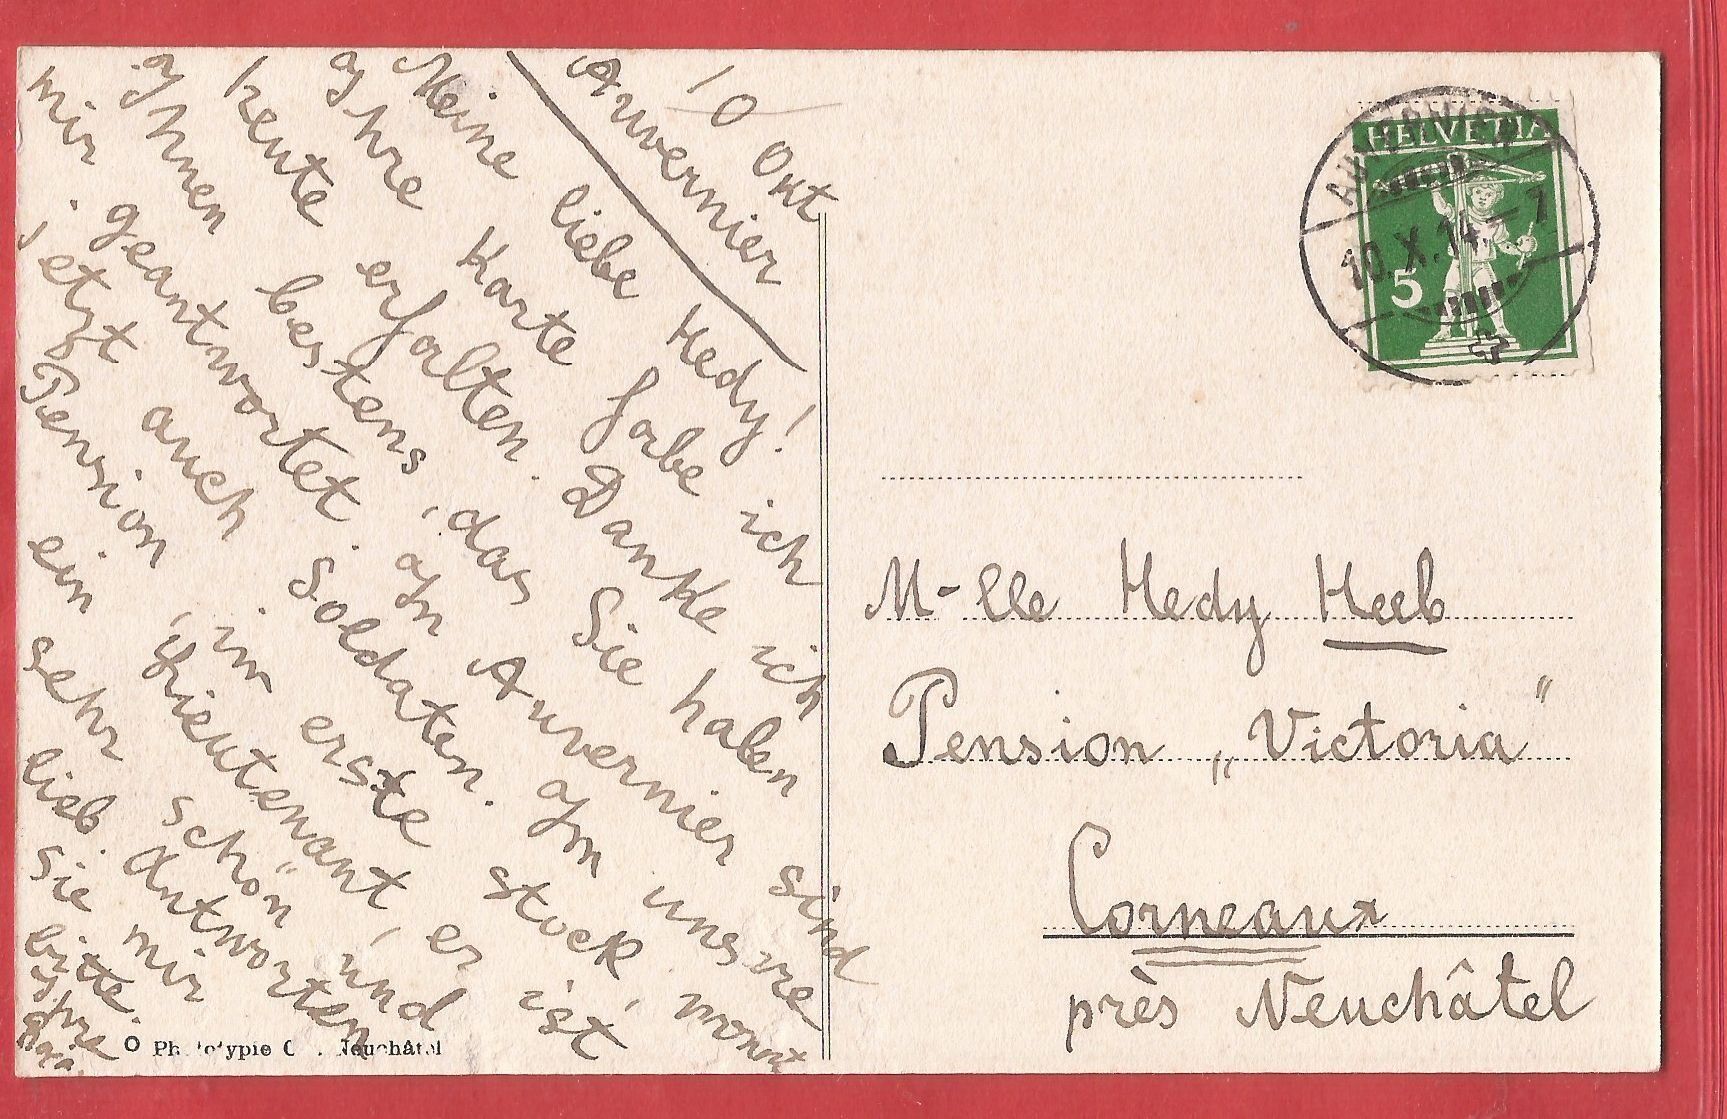 10 Okt
Auvernier
Meine liebe Hedy!
Ihre Karte habe ich
heute erhalten. Danke ich
Ihnen bestens, das Sie haben
mir geantwortet. In Auvernier sind
jetzt auch Soldaten. In unsre
Pension, im erste stock, wonnt
ein Lieutenant, er ist
sehr schön und
lieb. Antworten
Sie mir
bitte.
Ihre
M-lle Hedy Heeb
Pension „Victoria“
Corneaux
près Neuchâtel
HELVETIA
5
AUVERNIER
10.X.14.–7
Phototypie Co. Neuchâtel